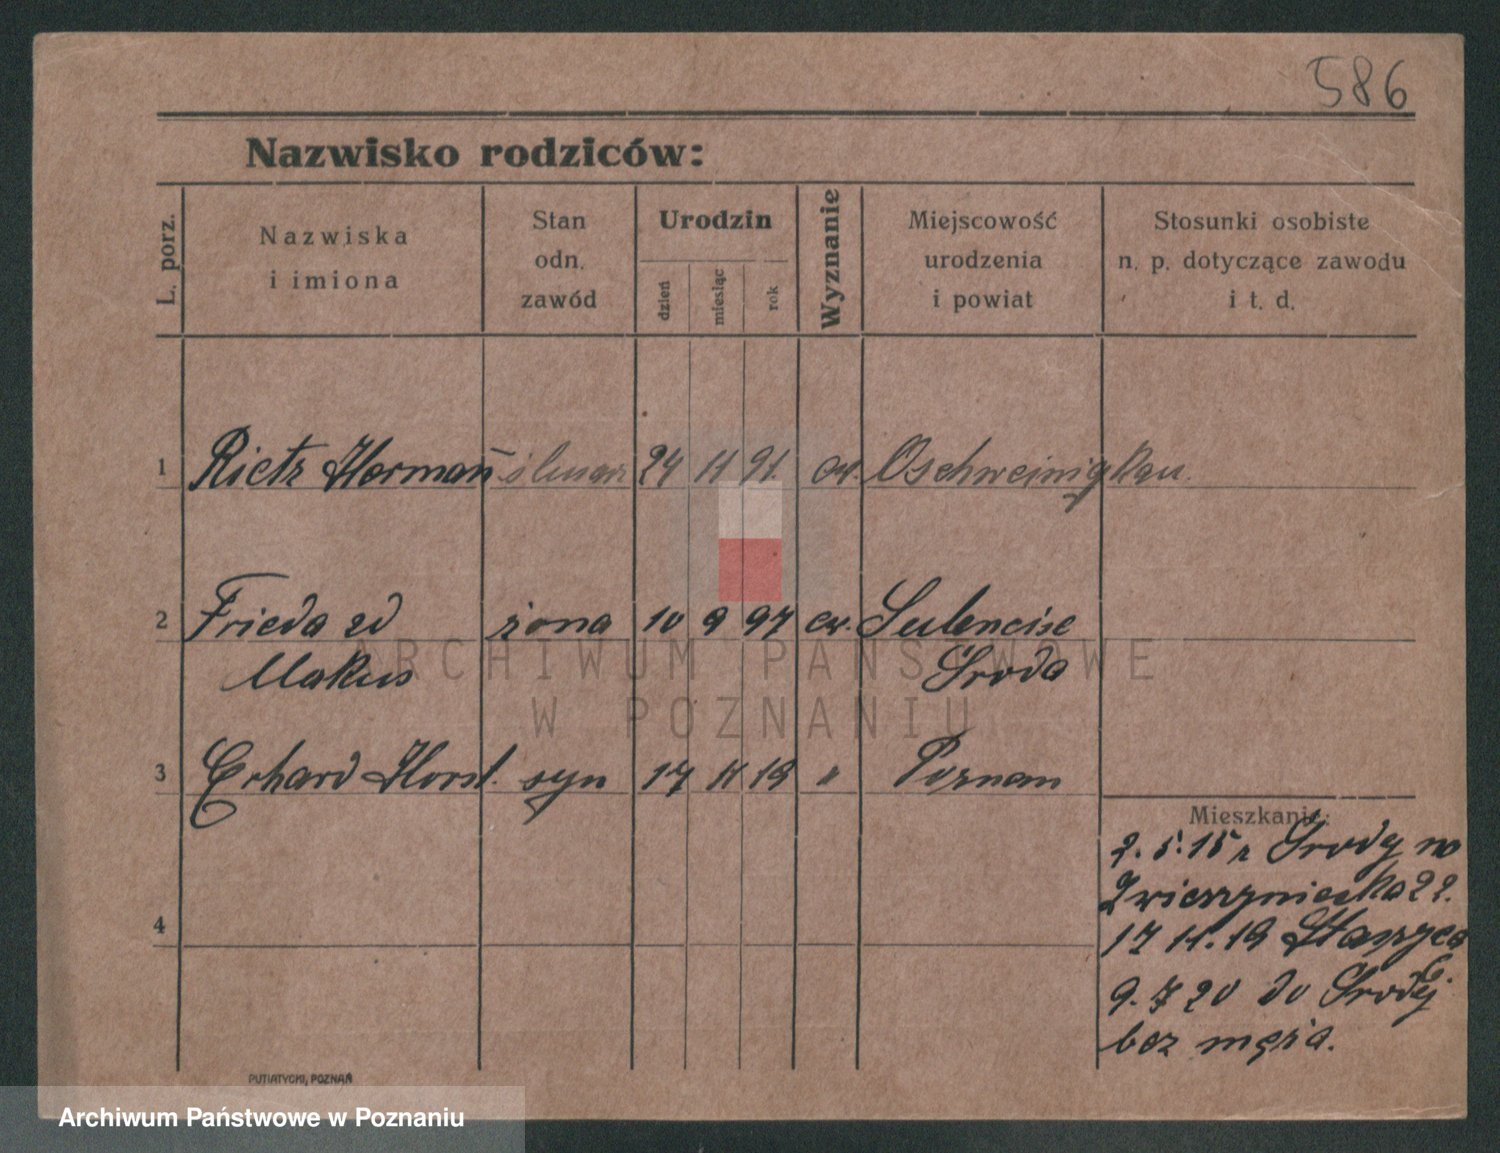 586
Nazwisko rodziców:
L. porz.
Nazwiska
i imiona
Stan
odn.
zawód
Urodzin
dzień
miesiąc
rok
Wyznanie
Miejscowość
urodzenia
i powiat
Stosunki osobiste
n. p. dotyczące zawodu
i t. d.
1 Rietz Herman ślusarz 24 11 91. ew. Oschweinigkau.
2 Frieda zd żona 10 9 97 ew.
Makus Środa
3 Erhard Horst. syn 17 11 19 " Poznam
Mieszkanie:
2. 5. 15 z Środy na
Zwierzyniecka 22.
17 11. 19
4
9. 7 20 do Środy
bez męża.
PUTIATYCKI, POZNAŃ
ARCHIWUM PAŃSTWOWE
W POZNANIU
Archiwum Państwowe w Poznaniu